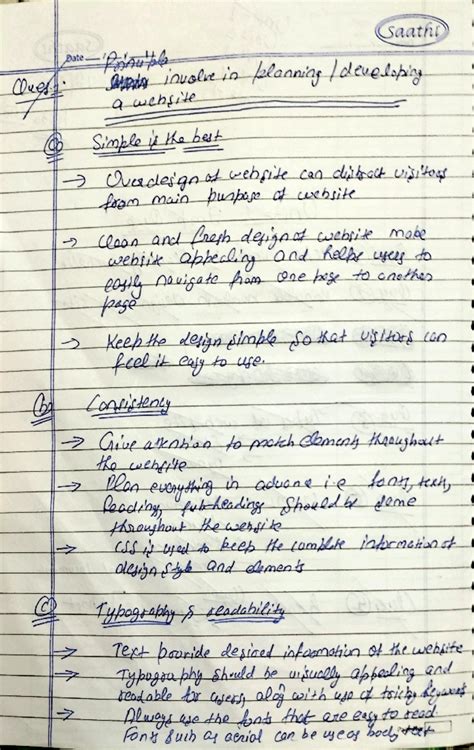 Saathi
Date
Principle
Ques:- involve in planning / developing
a website
(a) Simple is the best
→ Overdesign of website can distract visitors
from main purpose of website
→ Clean and fresh design of website make
website appealing and helps users to
easily navigate from one page to another
page
→ Keep the design simple so that visitors can
feel it easy to use.
(b) Consistency
→ Give attention to match elements throughout
the website
→ Plan everything in advance i.e fonts, text,
headings, sub-headings should be same
throughout the website
→ CSS is used to keep the complete information of
design style and elements
(c) Typography & readability
→ Text provide desired information of the website
→ Typography should be visually appealing and
readable for users along with use of tricky keywords
→ Always use the fonts that are easy to read.
Fonts such as aerial can be use as body text